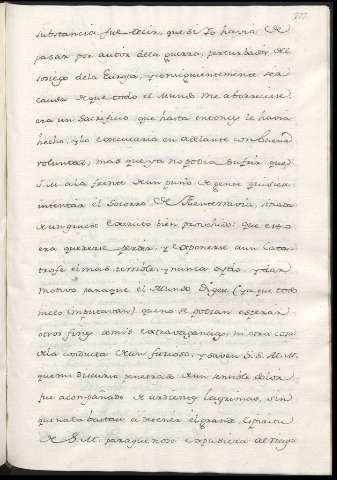 substancia fue decir, que si Yo havia de
pasar por autor dela guerra, perturbador del
sosiego dela Europa, y consiguientemente ser
causa de que todo el Mundo me aborreciese
era un sacrificio que hasta entonces le havia
hecho, y lo executaria en adelante con buena
voluntad, mas que ya no podia sufrir que
S.M. a la frente de un puño de gente quisiese
intentar el Socorro de Fuenterravia, sitiada
de un grueso Exercito bien prevenido: que esto
era quererse perder, y exponerse a una Catas
trofe el mas terrible, y nunca oydo, y dar
motivo para que el Mundo diga (ya que todo
me lo imputarian) que no se podian esperar
otros fines de mis extravagancias, ni otra cosa
de la conducta de un furioso, y saven S.S. M.M.
que mi discurso penetrado de un sensible dolor
fue acompañado de ardientes lagrimas, sin
que nada bastase a detener el grande Espiritu
de S.M. para que no se expusiera al riesgo